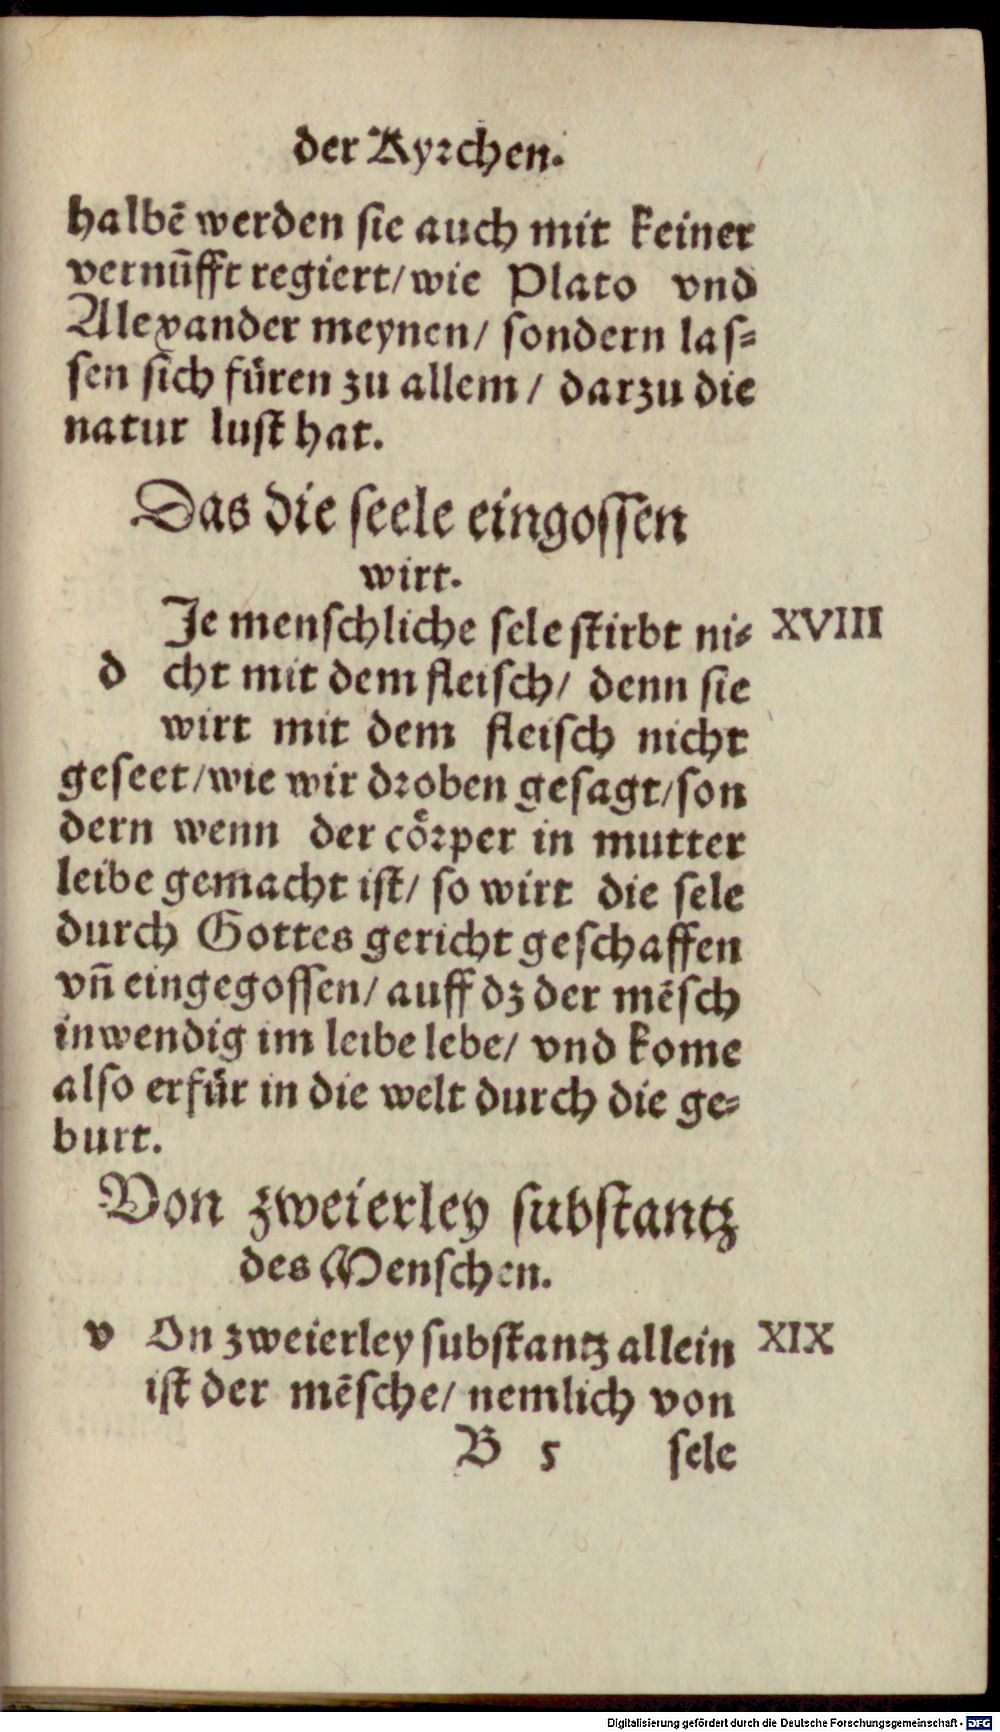 der Kyrchen.
halbē werden sie auch mit keiner
vernūfft regiert/wie Plato vnd
Alexander meynen/ sondern las-
sen sich fuͤren zu allem/ darzu die
natur lust hat.
Das die seele eingossen
wirt.
Je menschliche sele stirbt ni- XVIII
d cht mit dem fleisch/ denn sie
wirt mit dem fleisch nicht
geseet/wie wir droben gesagt/son
dern wenn der coͤrper in mutter
leibe gemacht ist/ so wirt die sele
durch Gottes gericht geschaffen
vn̄ eingegossen/ auff dz der mēsch
inwendig im leibe lebe/ vnd kome
also erfuͤr in die welt durch die ge-
burt.
Von zweierley substantz
des Menschen.
v On zweierley substantz allein XIX
ist der mēsche/ nemlich von
B 5 sele
Digitalisierung gefördert durch die Deutsche Forschungsgemeinschaft - DFG